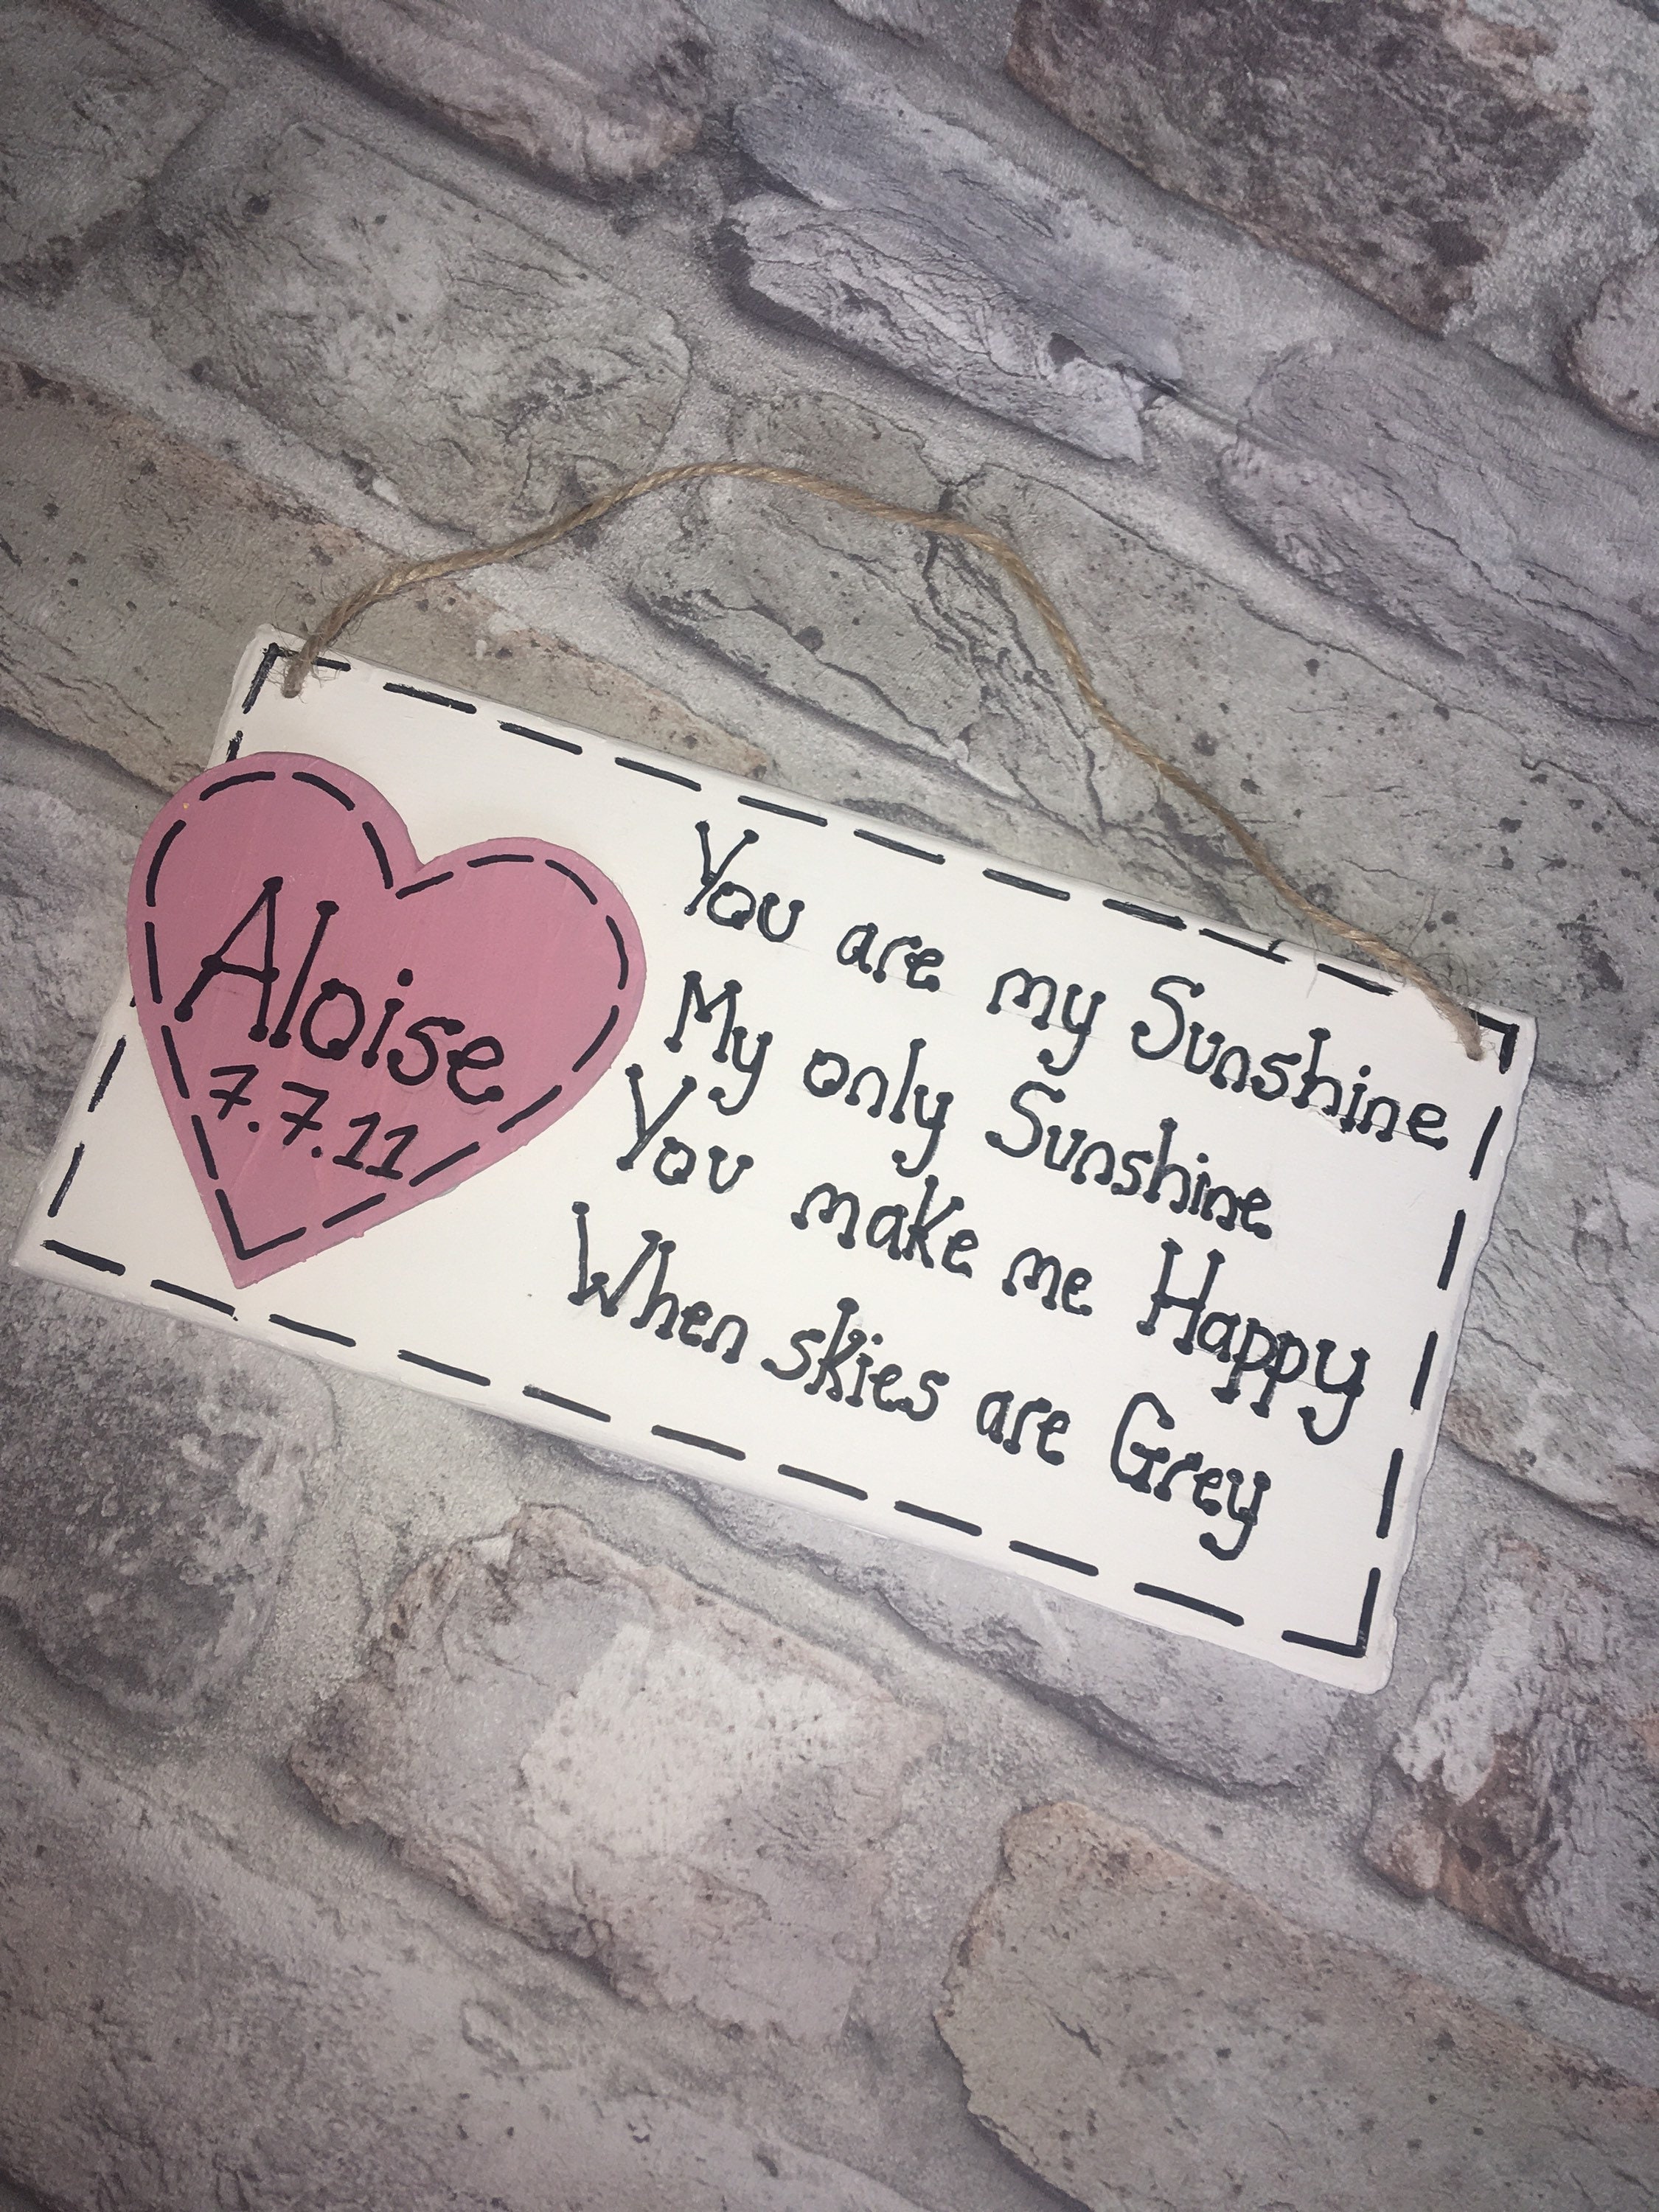 Aloise
7.7.11
You are my Sunshine
My only Sunshine
You make me Happy
When skies are Grey